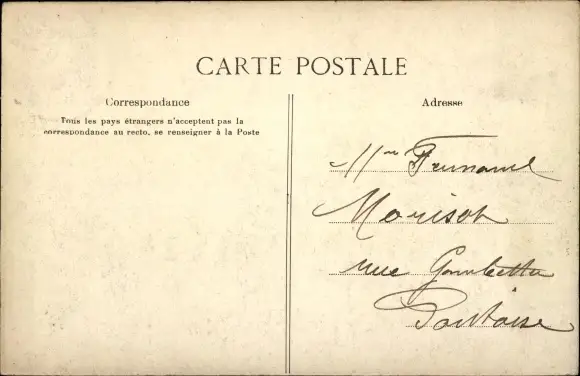 CARTE POSTALE
Correspondance
Tous les pays étrangers n'acceptent pas la
correspondance au recto, se renseigner à la Poste
Adresse
Mr Fernand
Morisot
rue Gambetta
Pontoise